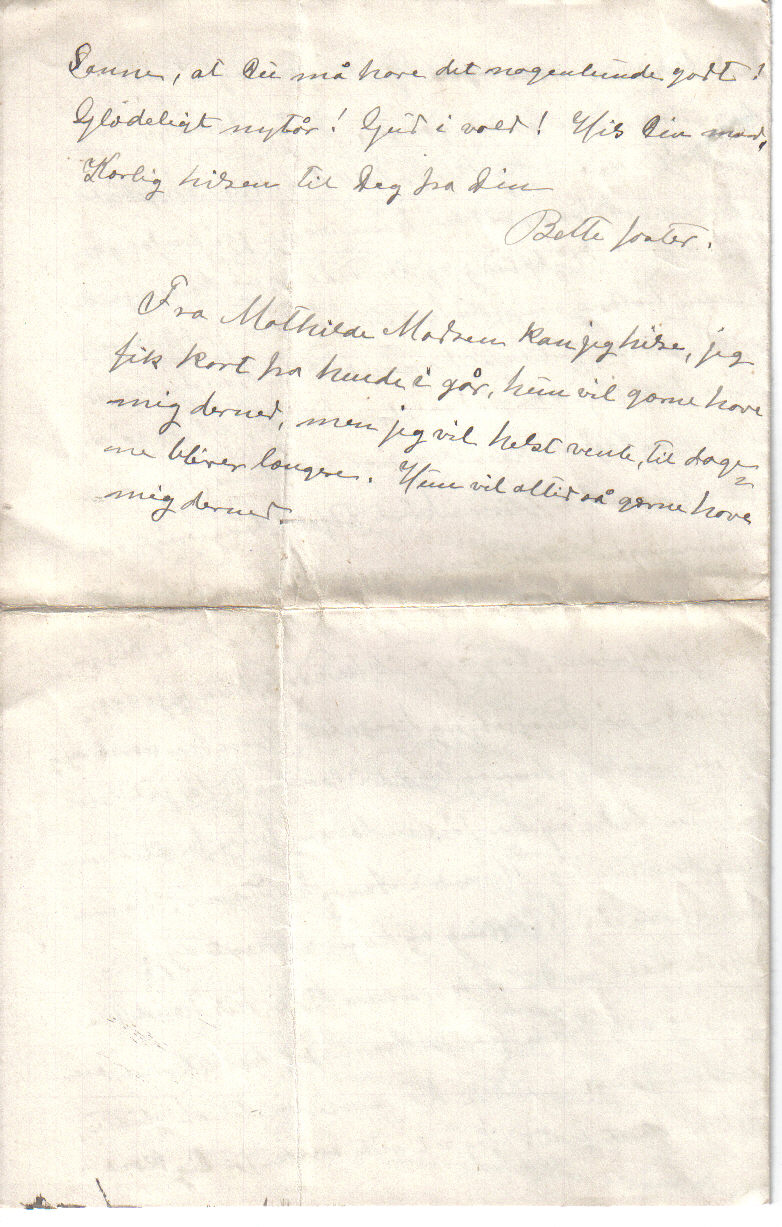 Sanne, at Du må have det nogenlunde godt!
Glædeligt nytår! Gud i vold! Hils Din mand,
Kærlig hilsen til Deg fra Din
Bette faster.
Fra Mathilde Madsen kan jeg hilse, jeg
fik kort fra hende i går, hun vil gærne have
mig derned, men jeg vil helst vente, til dage-
ne bliver længere. Hun vil altid så gærne have
mig derned.